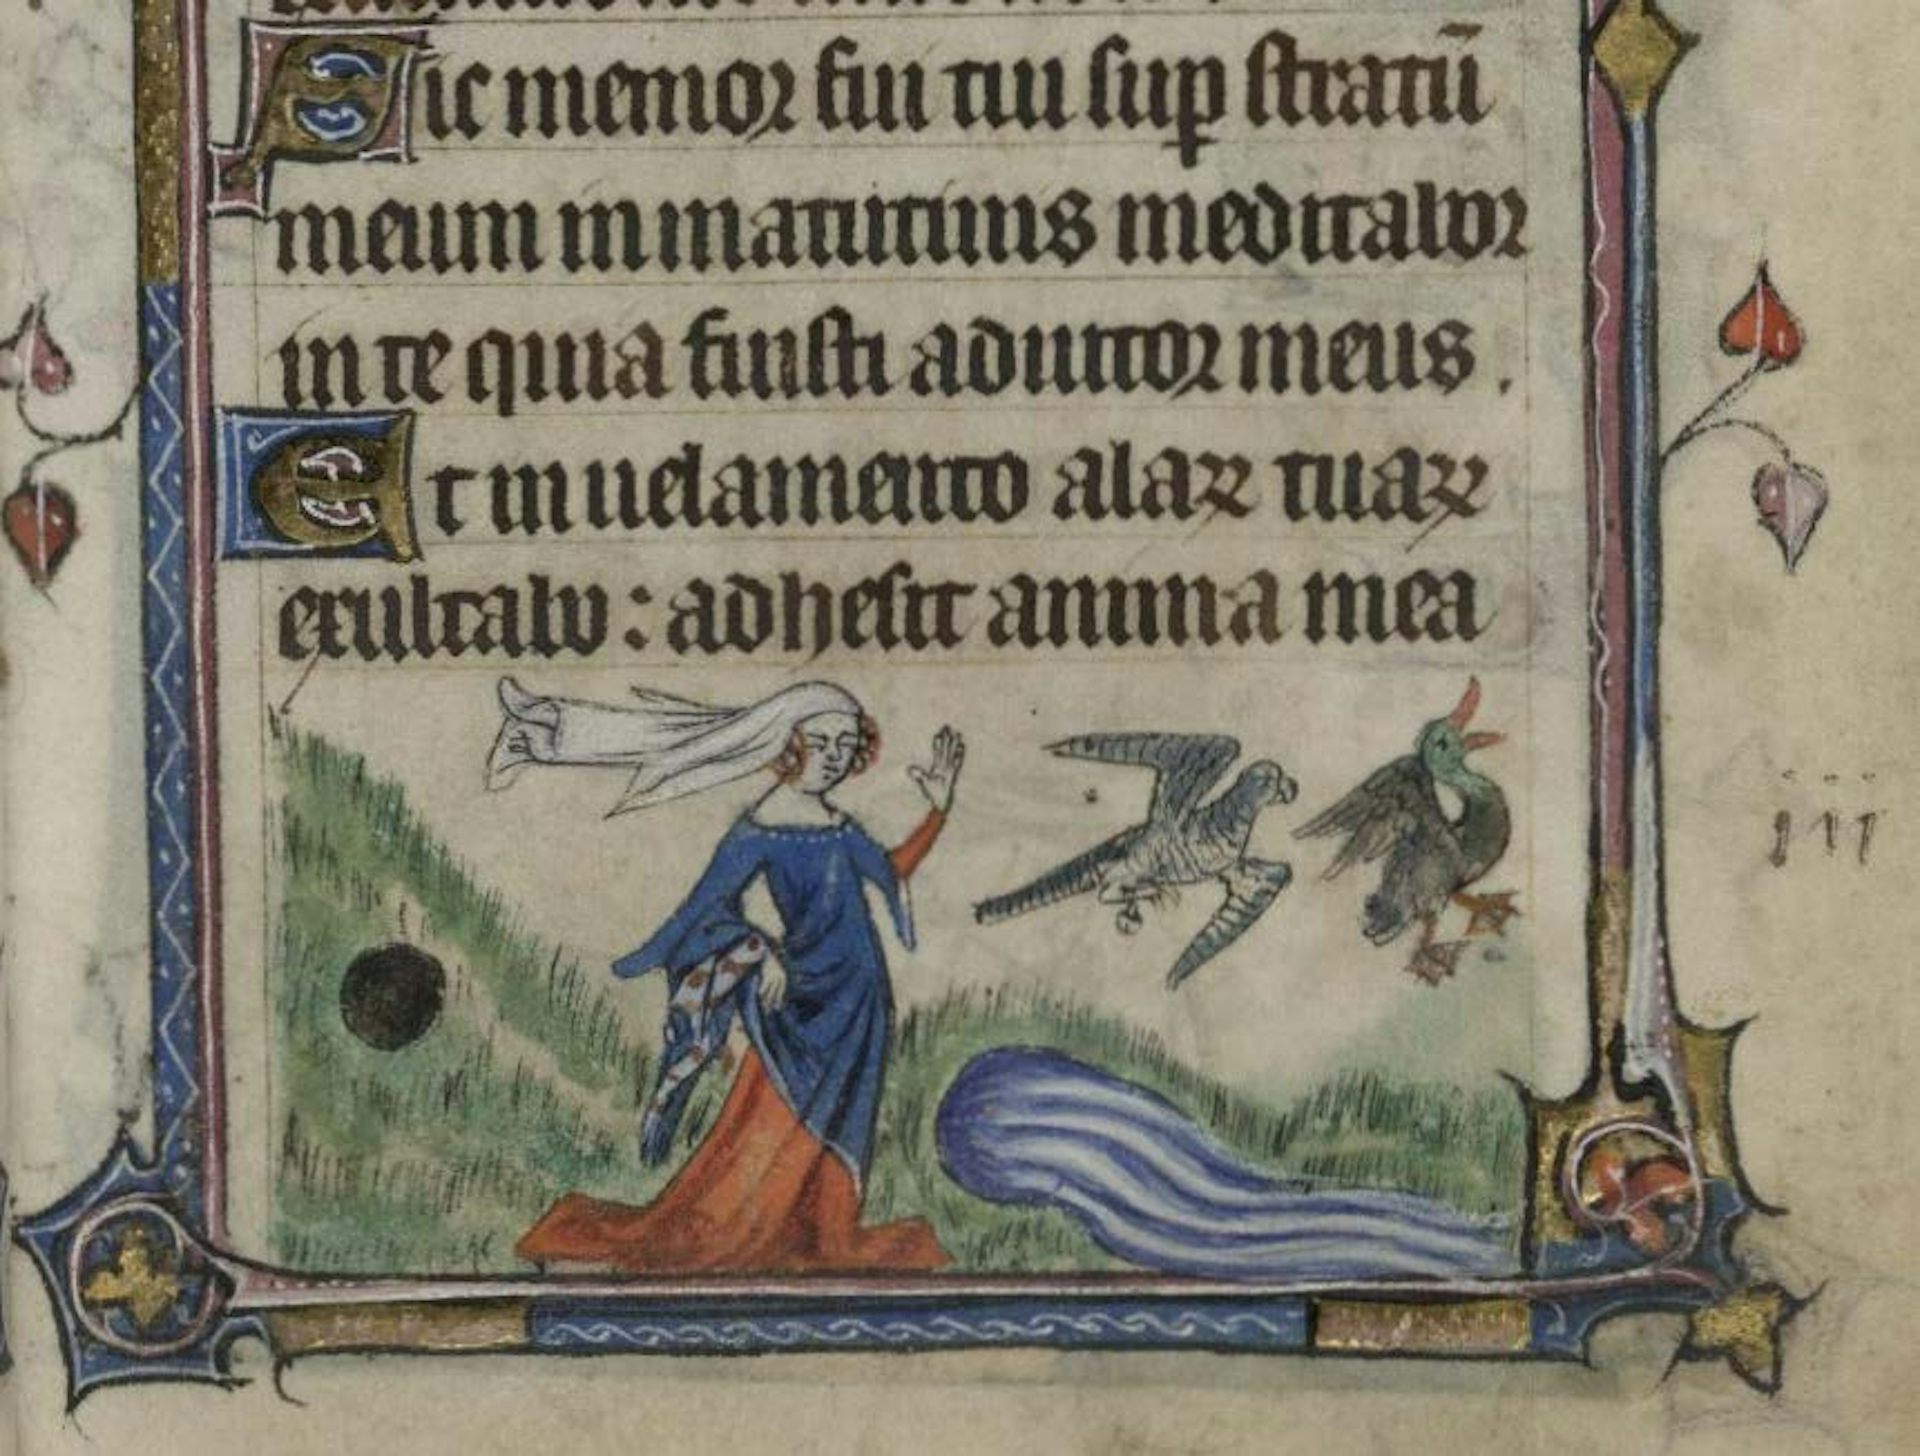 Sic memor fui tui sup stratū
meum in matutinis meditabor
in te quia fuisti adiutor meus.
Et in uelamento alaꝝ tuaꝝ
exultabo : adhesit anima mea
iii